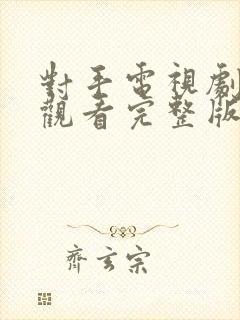 對手電視劇
觀看完整版
齊玄宗